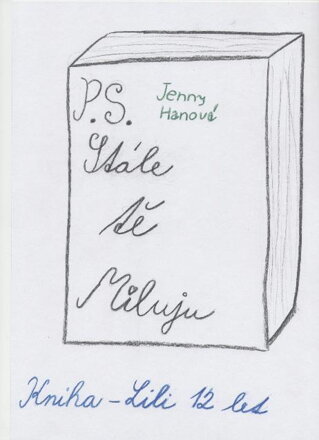 P.S.
Jenny
Hanová
Stále
tě
Miluju
Kniha - Lili 12 let